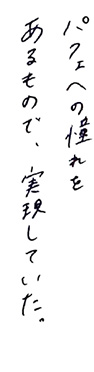 パフェへの憧れを
あるもので、実現していた。